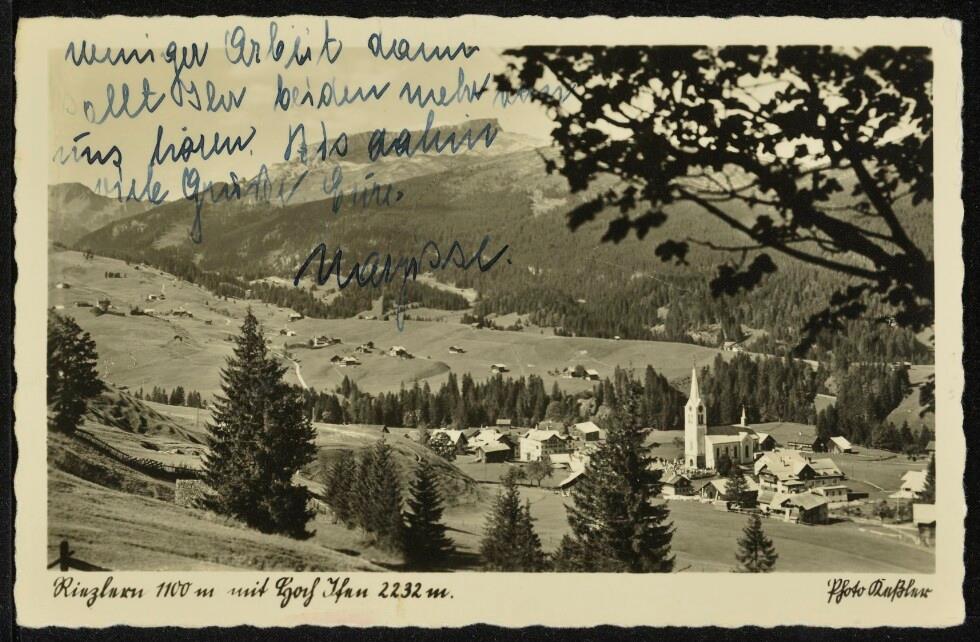 weniger Arbeit dann
sollt Ihr beiden mehr von
uns hören. Bis dahin
viele Grüße Eure
Riezlern 1100 m mit Hoch Ifen 2232 m.
Photo Keßler